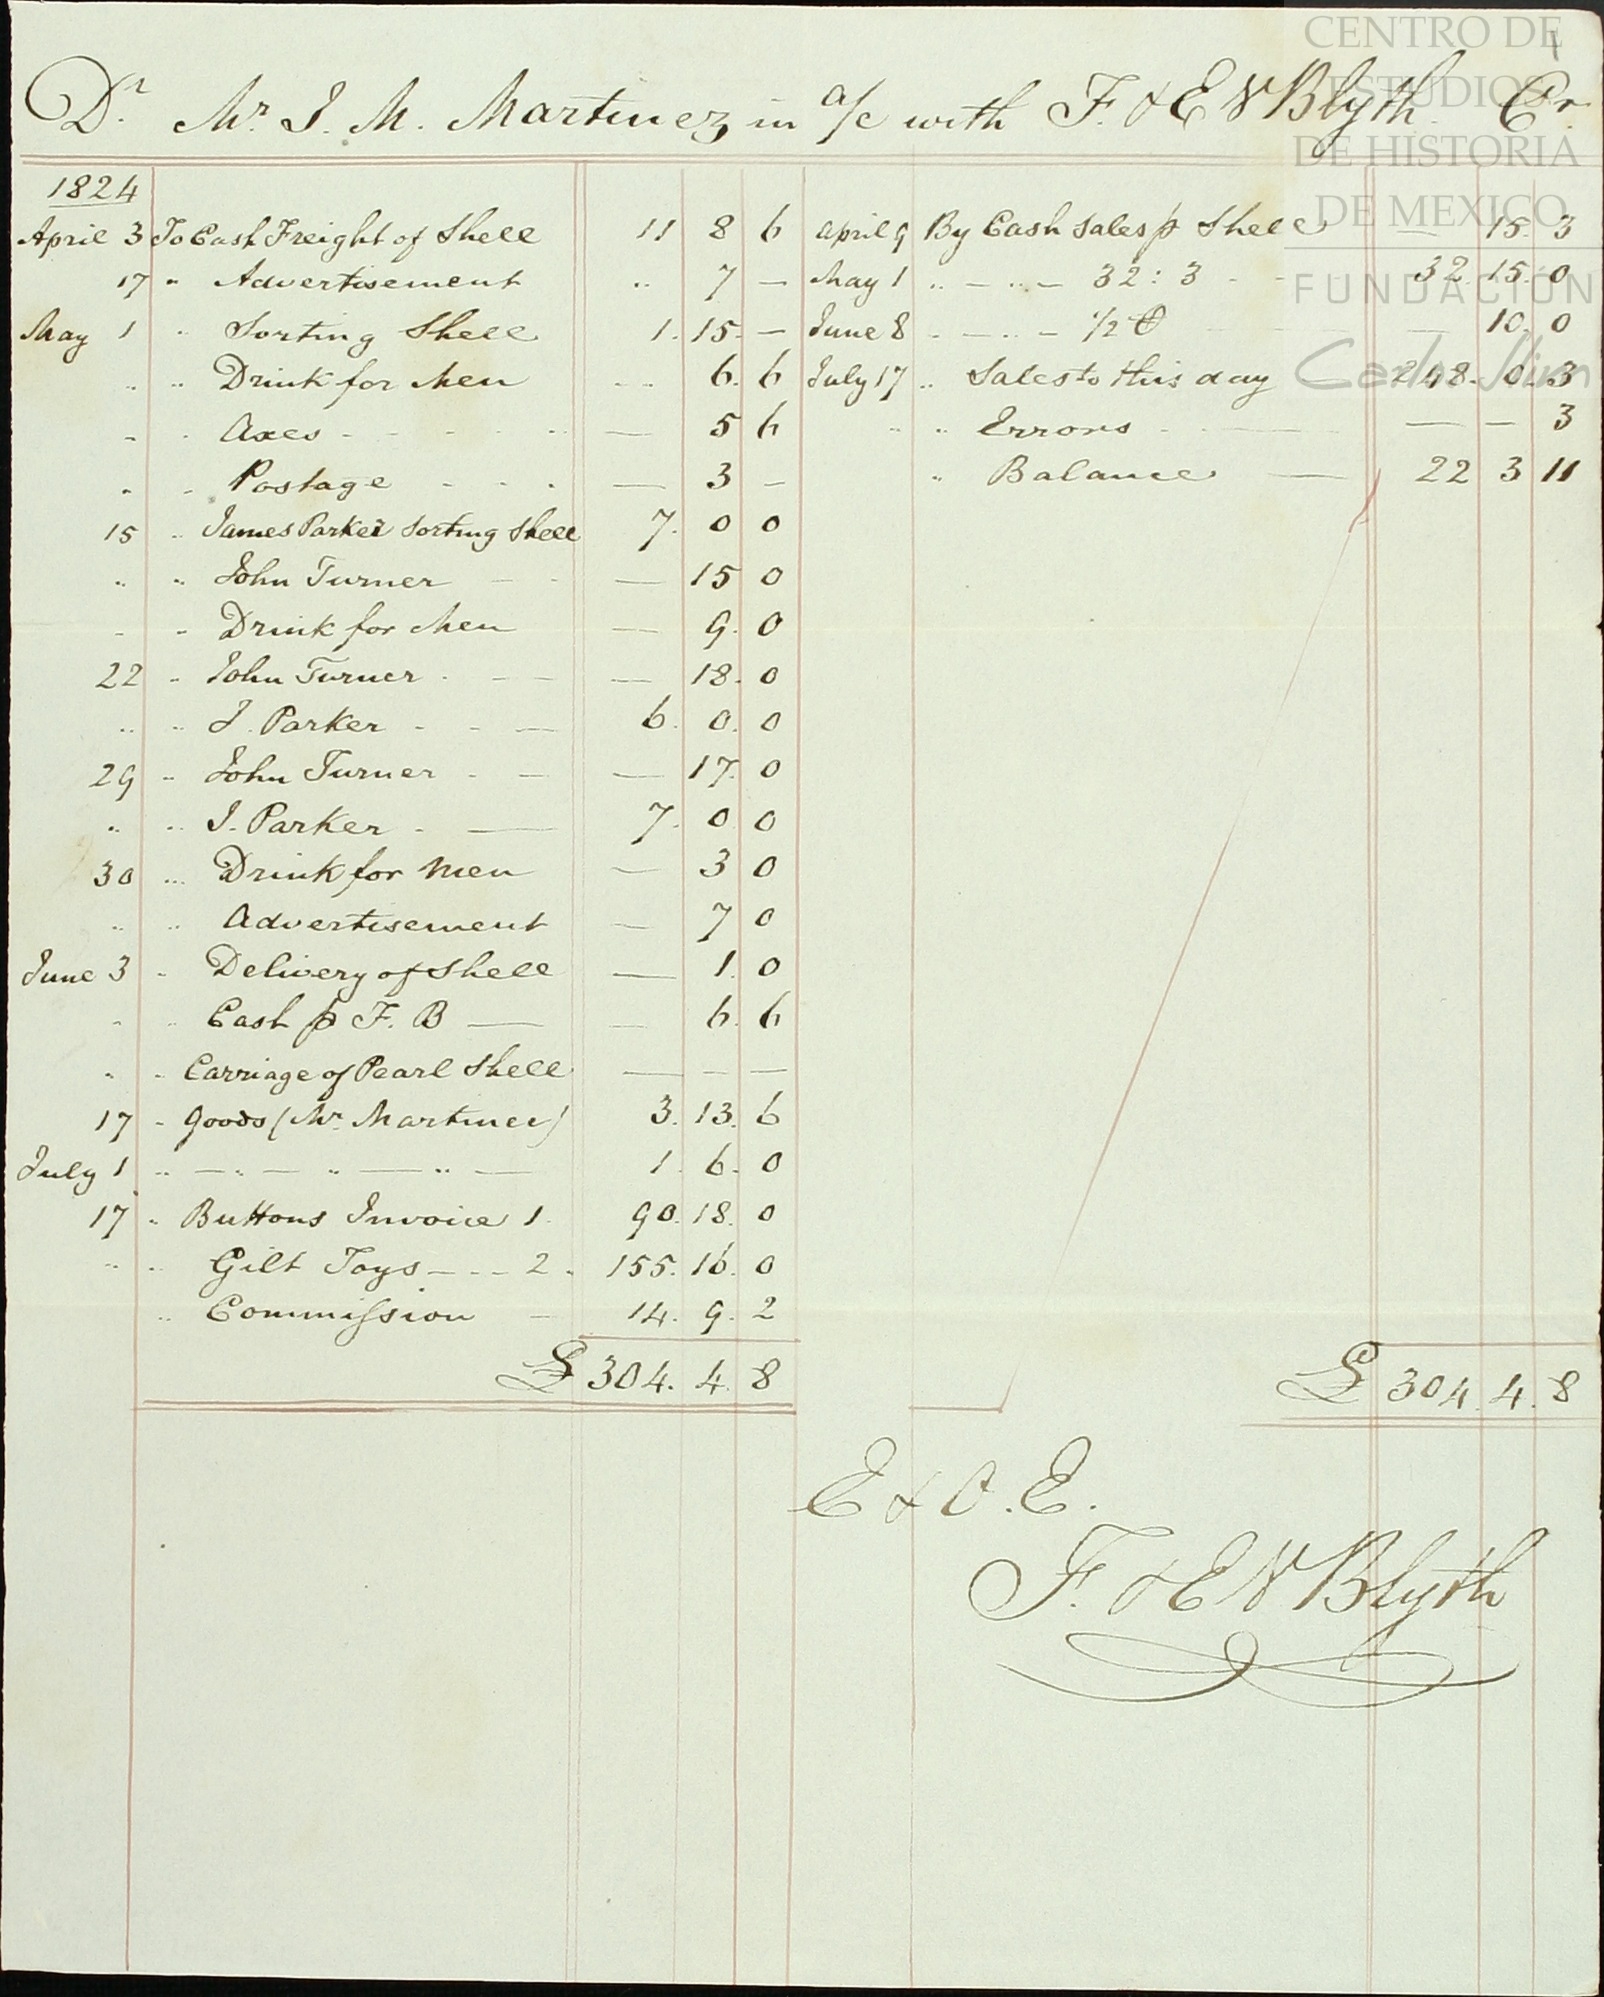 Dr. Mr. J. M. Martinez in a/c with F. & E N Blyth. Cr.
1824
April 3 To Cash Freight of Shell 11 8 6
17 " Advertisement .. 7 —
May 1 " Sorting Shell 1. 15. —
" " Drink for Men .. 6. 6
" " Axes — 5 6
" " Postage — 3 —
15 " James Parker Sorting Shell 7. 0 0
" " John Turner — 15 0
" " Drink for Men — 9. 0
22 " John Turner — 18. 0
" " J. Parker 6. 0. 0
29 " John Turner — 17. 0
" " J. Parker 7. 0 0
30 " Drink for Men — 3 0
" " Advertisement — 7 0
June 3 " Delivery of Shell — 1. 0
" " Cash p F. B — 6. 6
" " Carriage of Pearl Shell — — —
17 " Goods (Mr. Martinez) 3. 13. 6
July 1 " — " — " — " — 1. 6. 0
17 " Buttons Invoice 1. 90. 18. 0
" " Gilt Toys — — 2. 155. 16. 0
" Commission 14. 9. 2
£ 304. 4. 8
April 9 By Cash Sales p Shell — 15. 3
May 1 " — " — 32 : 3 32. 15. 0
June 8 " — " — 1/2 — 10. 0
July 17 " Sales to this day 248. 0. 3
" " Errors — — 3
" Balance 22 3 11
£ 304. 4. 8
E & O. E.
F. & E N Blyth
CENTRO DE
ESTUDIOS
DE HISTORIA
DE MEXICO
FUNDACIÓN
Carlos Slim